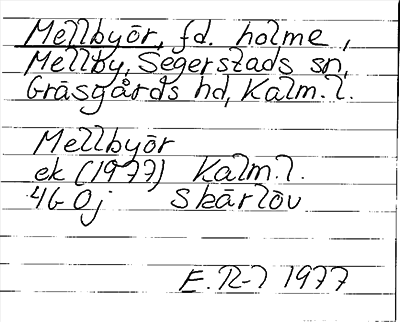 Mellbyör, fd. holme,
Mellby, Segerstads sn,
Gräsgårds hd, Kalm. l.
Mellbyör
ek (1977) Kalm. l.
4G 0j Skärlöv
E. R-l 1977